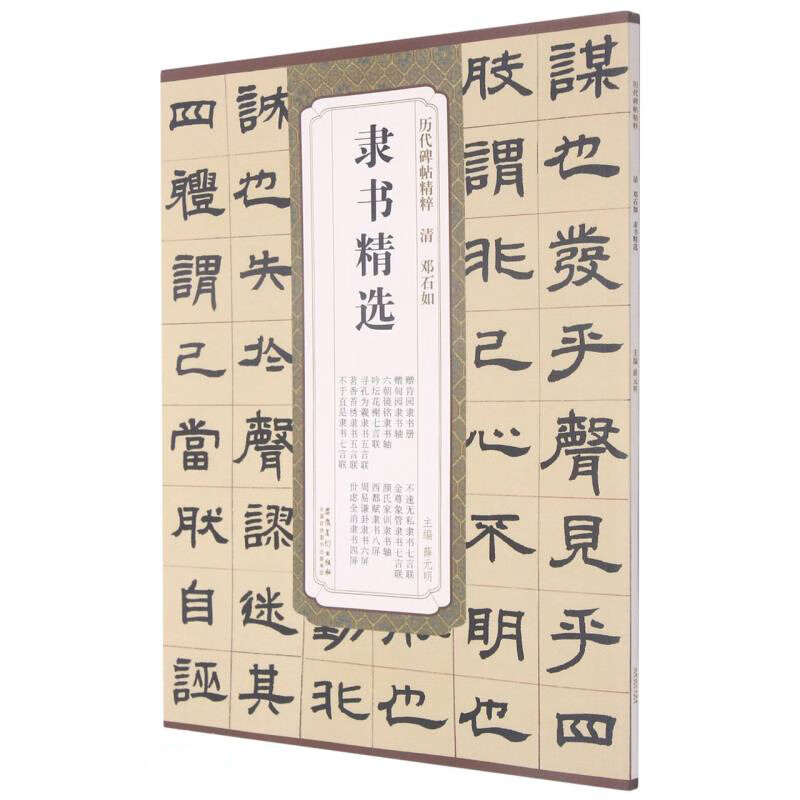 謀也發乎聲見乎四
肢謂非己心不明也
也
動非
誠也失於聲謬迷其
四體謂己當肰自誣
历代碑帖精粹 清 邓石如
隶书精选
赠肯园隶书册
赠甸园隶书轴
六朝镜铭隶书轴
吟坛花榭七言联
寻孔为羲隶书五言联
茗香苔绣隶书五言联
不于直是隶书七言联
不速无私隶书七言联
金尊象管隶书七言联
颜氏家训隶书轴
西都赋隶书八屏
周易谦卦隶书六屏
世虑全消隶书四屏
主编 薛元明
安徽美术出版社
全国百佳图书出版单位
历代碑帖精粹 清 邓石如 隶书精选 主编 薛元明